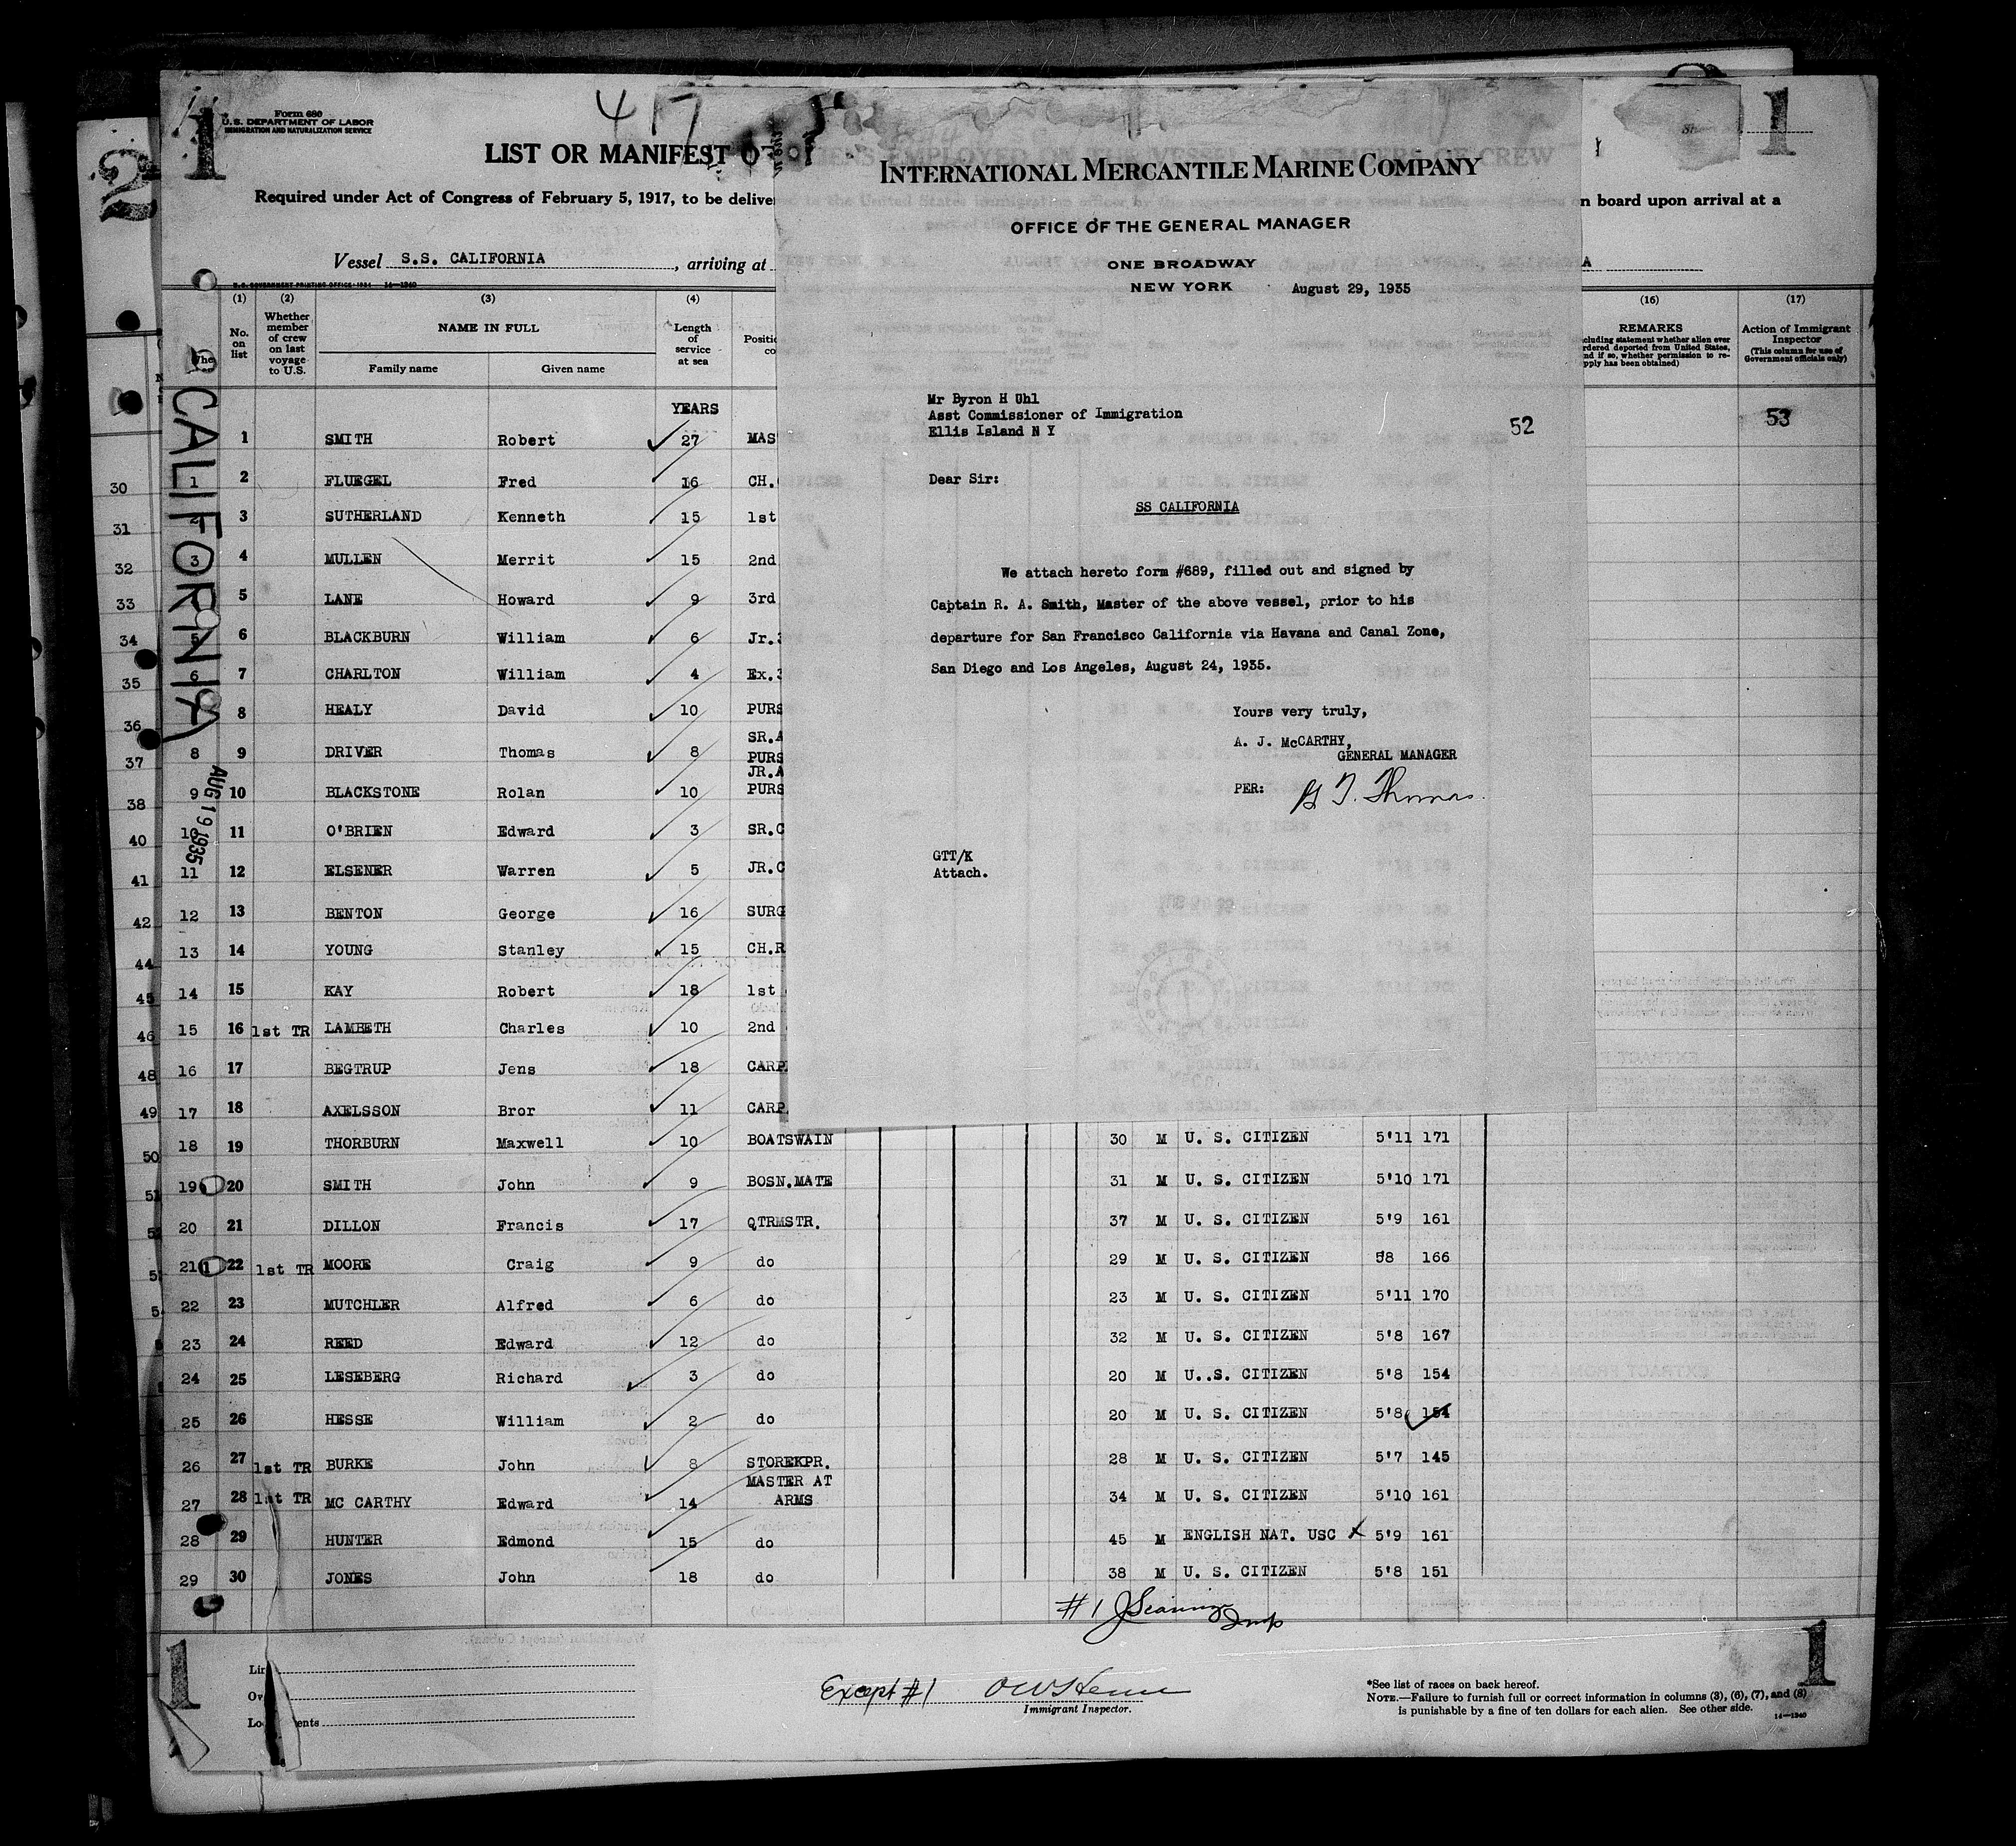 417
1
1
2
Form 680
U.S. DEPARTMENT OF LABOR
IMMIGRATION AND NATURALIZATION SERVICE
LIST OR MANIFEST O
Required under Act of Congress of February 5, 1917, to be delive
n board upon arrival at a
Vessel S.S. CALIFORNIA, arriving at
A
U.S. GOVERNMENT PRINTING OFFICE: 1934 14—1240
INTERNATIONAL MERCANTILE MARINE COMPANY
OFFICE OF THE GENERAL MANAGER
ONE BROADWAY
NEW YORK August 29, 1935
Mr Byron H Uhl
Asst Commissioner of Immigration
Ellis Island N Y
52
Dear Sir:
SS CALIFORNIA
We attach hereto form #689, filled out and signed by
Captain R. A. Smith, Master of the above vessel, prior to his
departure for San Francisco California via Havana and Canal Zone,
San Diego and Los Angeles, August 24, 1935.
Yours very truly,
A. J. McCARTHY,
GENERAL MANAGER
PER: G T. Thomas.
GTT/K
Attach.
(1) (2) (3) (4) (16) (17)
No. on list
Whether member of crew on last voyage to U.S.
NAME IN FULL
Family name Given name
Length of service at sea
Positio
co
REMARKS
cluding statement whether alien ever
rdered deported from United States,
nd if so, whether permission to re-
pply has been obtained)
Action of Immigrant Inspector
(This column for use of Government officials only)
53
CALIFORNIA
AUG 19 1935
YEARS
1 SMITH Robert 27 MAS
1 2 FLUEGEL Fred 16 CH.
2 3 SUTHERLAND Kenneth 15 1st
3 4 MULLEN Merrit 15 2nd
5 LANE Howard 9 3rd
5 6 BLACKBURN William 6 Jr.3
6 7 CHARLTON William 4 Ex.3
8 HEALY David 10 PURS
8 9 DRIVER Thomas 8 SR.A PURS
9 10 BLACKSTONE Rolan 10 JR.A PURS
10 11 O'BRIEN Edward 3 SR.C
11 12 ELSENER Warren 5 JR.C
12 13 BENTON George 16 SURG
13 14 YOUNG Stanley 15 CH.R
14 15 KAY Robert 18 1st
15 16 1st TR LAMBETH Charles 10 2nd
16 17 BEGTRUP Jens 18 CARP
17 18 AXELSSON Bror 11 CARP
18 19 THORBURN Maxwell 10 BOATSWAIN 30 M U. S. CITIZEN 5'11 171
19 20 SMITH John 9 BOSN.MATE 31 M U. S. CITIZEN 5'10 171
20 21 DILLON Francis 17 QTRMSTR. 37 M U. S. CITIZEN 5'9 161
21 22 1st TR MOORE Craig 9 do 29 M U. S. CITIZEN 5'8 166
22 23 MUTCHLER Alfred 6 do 23 M U. S. CITIZEN 5'11 170
23 24 REED Edward 12 do 32 M U. S. CITIZEN 5'8 167
24 25 LESEBERG Richard 3 do 20 M U..S. CITIZEN 5'8 154
25 26 HESSE William 2 do 20 M U. S. CITIZEN 5'8 154
26 27 1st TR BURKE John 8 STOREKPR. 28 M U. S. CITIZEN 5'7 145
27 28 1st TR MC CARTHY Edward 14 MASTER AT ARMS 34 M U. S. CITIZEN 5'10 161
28 29 HUNTER Edmond 15 do 45 M ENGLISH NAT. USC X 5'9 161
29 30 JONES John 18 do 38 M U. S. CITIZEN 5'8 151
30
31
32
33
34
35
36
37
38
40
41
42
44
45
46
48
49
50
#1
Except #1
Immigrant Inspector.
*See list of races on back hereof.
NOTE.—Failure to furnish full or correct information in columns (3), (6), (7), and (8)
is punishable by a fine of ten dollars for each alien. See other side.
14—1240
1
1